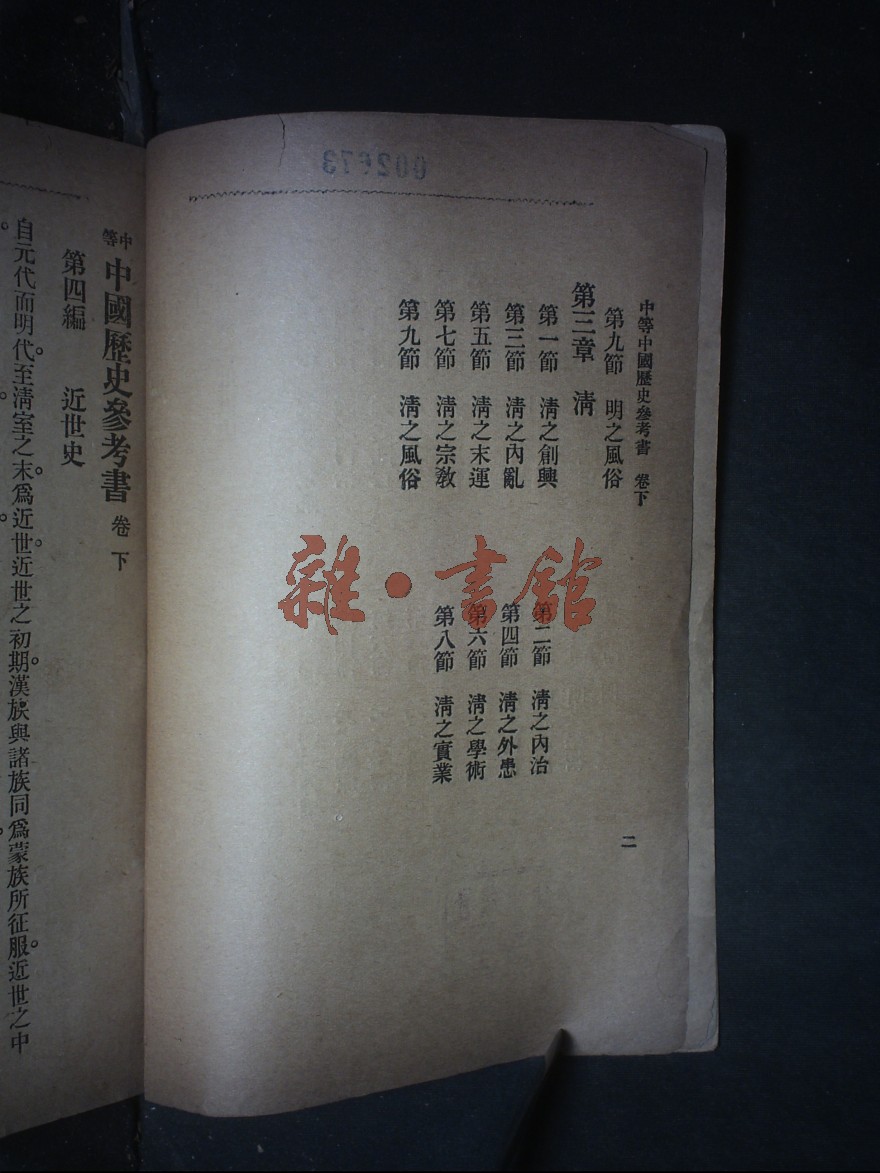 中等中國歷史參考書 卷下
第九節 明之風俗
第三章 清
第一節 清之創興
第二節 清之內治
第三節 清之內亂
第四節 清之外患
第五節 清之末運
第六節 清之學術
第七節 清之宗教
第八節 清之實業
第九節 清之風俗
二
002673
雜·書館
中等 中國歷史參考書 卷下
第四編 近世史
自元代而明代。至清室之末。爲近世。近世之初期。漢族與諸族同爲蒙族所征服。近世之中